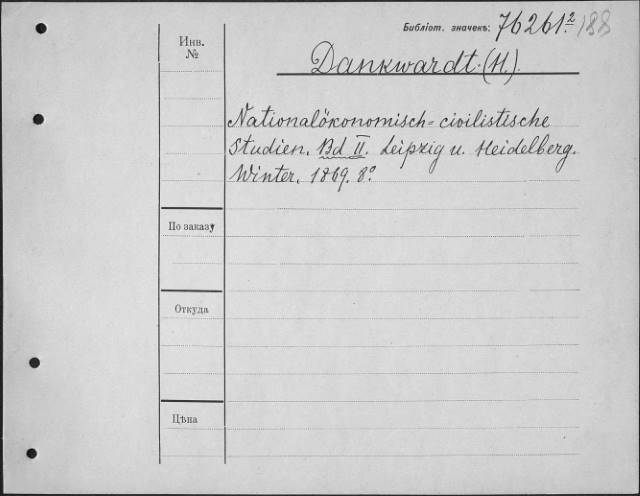 Библіот. значекъ: 76261.² /188
Инв.
№
Dankwardt. (H.).
Nationalökonomisch-civilistische
Studien. Bd II. Leipzig u. Heidelberg.
Winter. 1869. 8º
По заказу
Откуда
Цѣна